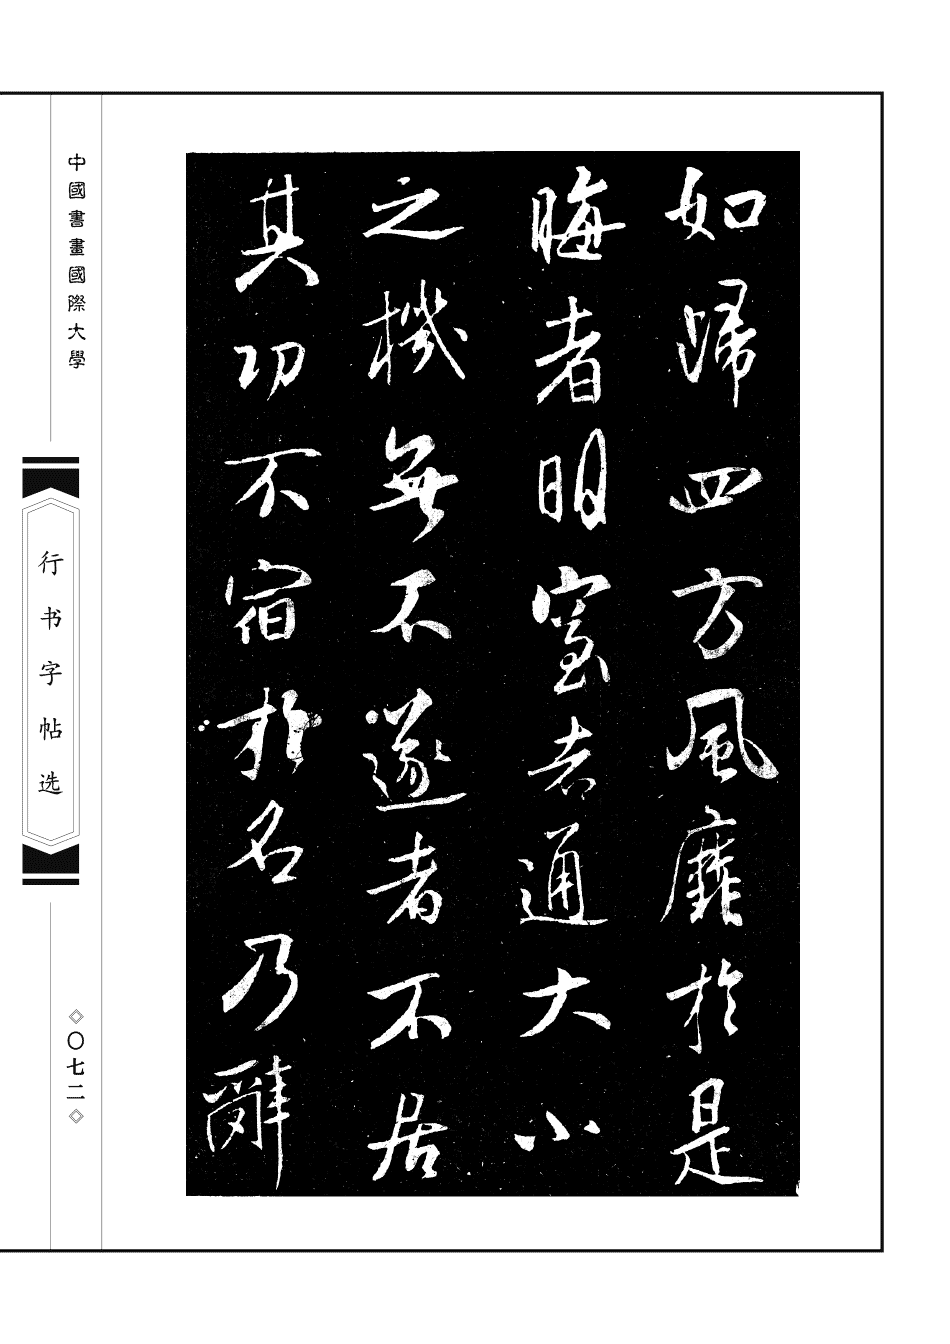 如歸四方風靡於是
晦者明窒者通大小
之機無不遂者不居
其功不宿於名乃辭
中國書畫國際大學
行书字帖选
◇〇七二◇